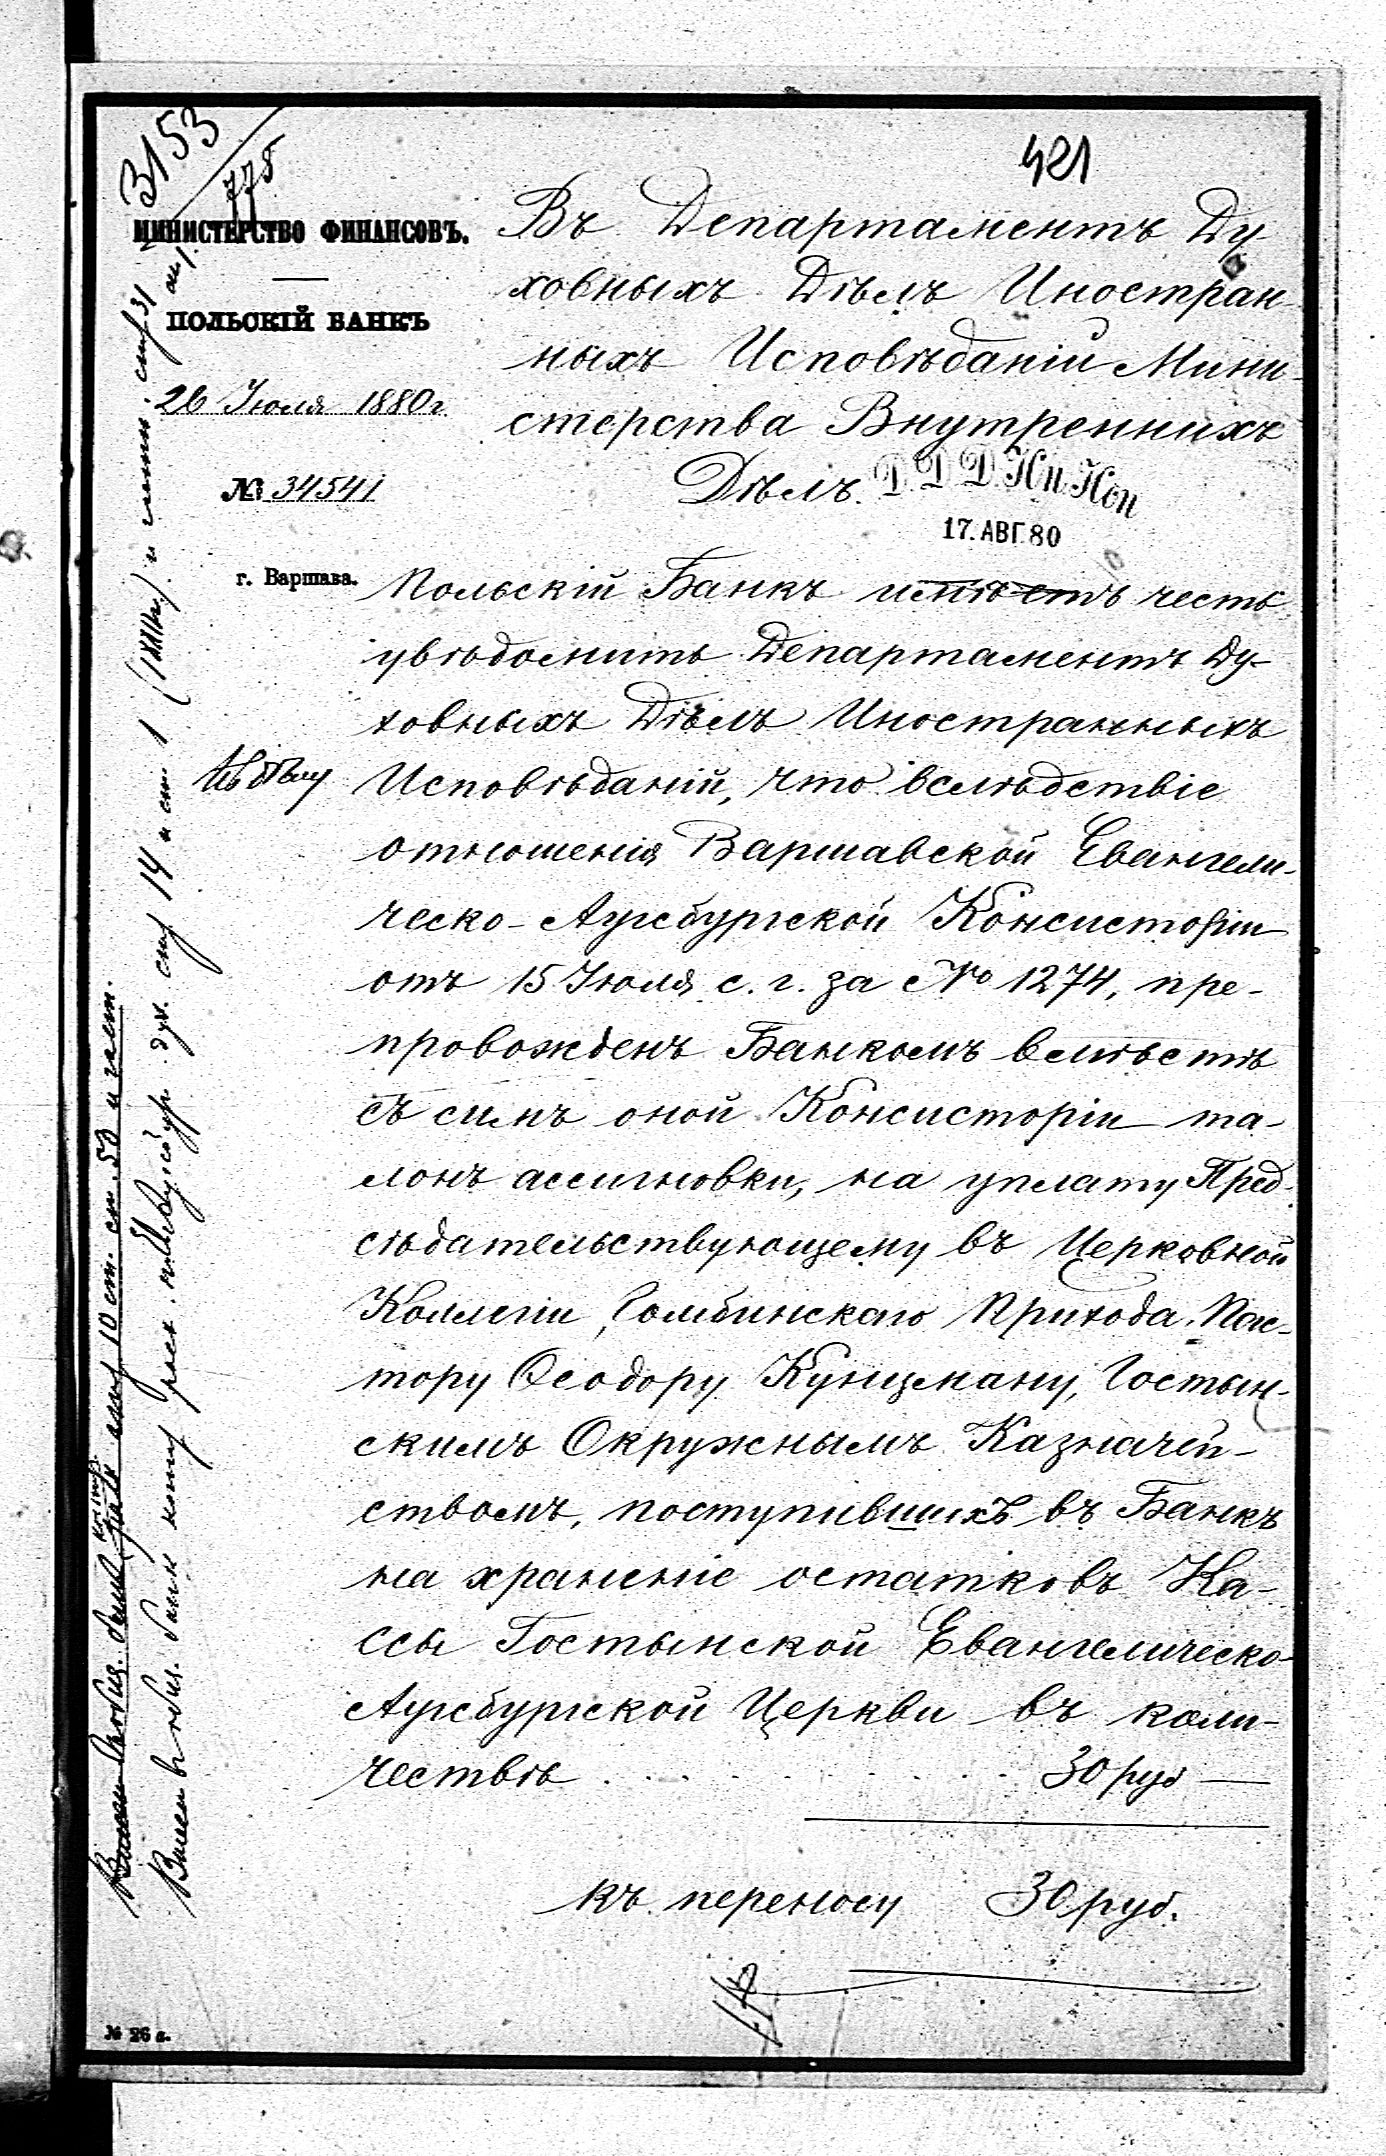 3153
775
421
МИНИСТЕРСТВО ФИНАНСОВЪ.
ПОЛЬСКІЙ БАНКЪ
26 Іюля 1880 г.
№ 34541
г. Варшава.
Въ Департаментъ Ду-
ховныхъ Дѣлъ Иностран-
ныхъ Исповѣданій Мини-
стерства Внутреннихъ
Дѣлъ.
Д. Д. Д. Ин. Исп
17. АВГ. 80
Польскій Банкъ имѣетъ честь
увѣдомить Департаментъ Ду-
ховныхъ Дѣлъ Иностранныхъ
Исповѣданій, что вслѣдствіе
отношенія Варшавской Евангели-
ческо-Аугсбургской Консисторіи
отъ 15 Іюля с. г. за № 1274, пре-
провожденъ Банкомъ вмѣстѣ
съ симъ оной Консисторіи та-
лонъ ассигновки, на уплату Пред-
сѣдательствующему въ Церковной
Коллегіи Гомбинскаго Прихода, Пас-
тору Ѳеодору Кунцману, Гостын-
скимъ Окружнымъ Казначей-
ствомъ, поступившихъ въ Банкъ
на храненіе остатковъ Ка-
ссы Гостынской Евангелическо-
Аугсбургской Церкви въ коли-
чествѣ . . . . . . . . 30 руб —
къ переносу 30 руб.
№ 26 а.
10 ст. ст. 53
14 и ст. 1